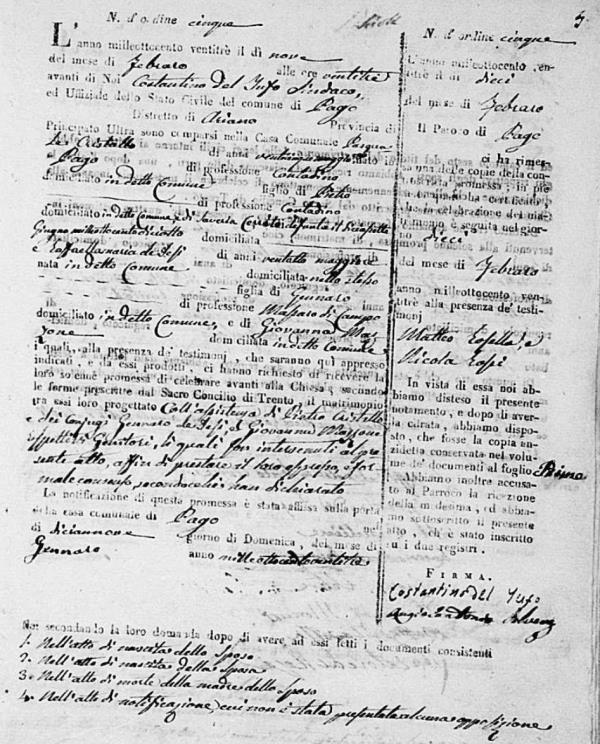 N. d'ordine cinque
L'anno milleottocento ventitrè il dì nove
del mese di Febraro alle ore ventitrè
avanti di Noi Costantino del Tufo Sindaco,
ed Uffiziale dello Stato Civile del comune di Pago
Distretto di Ariano Provincia di
Principato Ultra sono comparsi nella Casa Comunale Pasqua
le Castello di anni ventinove maggiore nato in
Pago di professione Contadino
domiciliato in detto Comune figlio di Pietro
di professione Contadino
domiciliato in detto Comune, e di Saveria defunta il
Giugno milleottocentodiciotto domiciliata
e Raffaella maria de Fosi di anni ventotto maggiore
nata in detto Comune domiciliata nello stesso
figlia di Gennaro
di professione Massaro di Campo
domiciliato in detto Comune, e di Giovanna Maz
zone domiciliata in detto Comune
I quali, alla presenza de' testimonj, che saranno qui appresso
indicati, e da essi prodotti, ci hanno richiesto di ricevere la
loro solenne promessa di celebrare avanti alla Chiesa, secondo
le forme prescritte dal Sacro Concilio di Trento, il matrimonio
tra essi loro progettato Coll'assistenza di Pietro Castello
e dei Conjugi Gennaro de Fosi, e Giovanna Mazzone
rispettivi Genitori, li quali son intervenuti al pre
sente atto, affin di prestare il loro espresso, e for
male consenso, secondocchè han dichiarato
La notificazione di questa promessa è stata affissa sulla porta
della casa comunale di Pago nel
dì diciannove giorno di Domenica, del mese di
Gennaro anno milleottocentoventitrè
Noi secondando la loro domanda dopo di avere, ad essi letti i documenti consistenti
1. Nell'atto di nascita dello Sposo
2. Nell'atto di nascita della Sposa
3. Nell'atto di morte della madre dello Sposo
4. Nell'atto di notificazione, cui non è stata presentata alcuna opposizione
5
N. d'ordine cinque
L'anno milleottocento ven-
titrè il dì dieci
del mese di Febraro
Il Paroco di Pago
ci ha rimes-
sa una delle copie della con-
trascritta promessa, in piè
della quale ha certificato,
che la celebrazione del ma-
trimonio è seguita nel giorno
dieci
del mese di Febraro
anno milleottocento ven-
titrè alla presenza de' testi-
monj
Matteo
Nicola
In vista di essa noi ab-
biamo disteso il presente
notamento, e dopo di aver-
la cifrata, abbiamo dispo-
sto, che fosse la copia an-
zidetta conservata nel volu-
me de' documenti al foglio Primo
Abbiamo inoltre accusa-
to al Parroco la ricezione
della medesima, ed abbia-
mo sottoscritto il presente
atto, ch'è stato inscritto
su i due registri.
FIRMA.
Costantino del Tufo